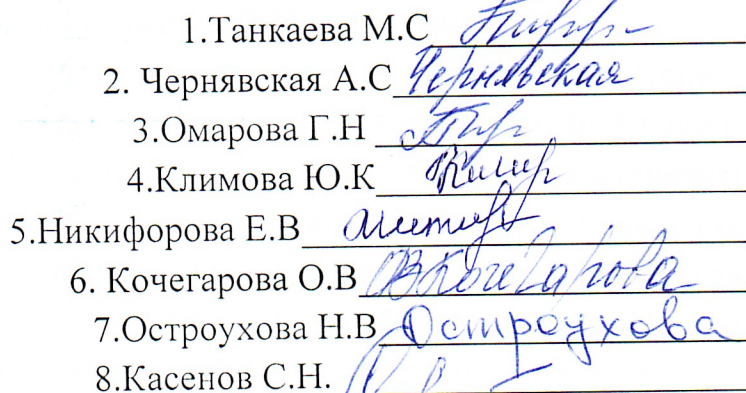 1.Танкаева М.С
2. Чернявская А.С Чернявская
3.Омарова Г.Н
4.Климова Ю.К
5.Никифорова Е.В
6. Кочегарова О.В Кочегарова
7.Остроухова Н.В Остроухова
8.Касенов С.Н.